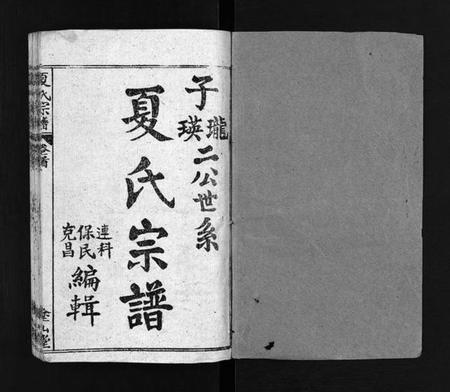 子瓏瑛二公世系
夏氏宗譜
連科
保民
克昌
編輯
夏氏宗譜
塗山堂